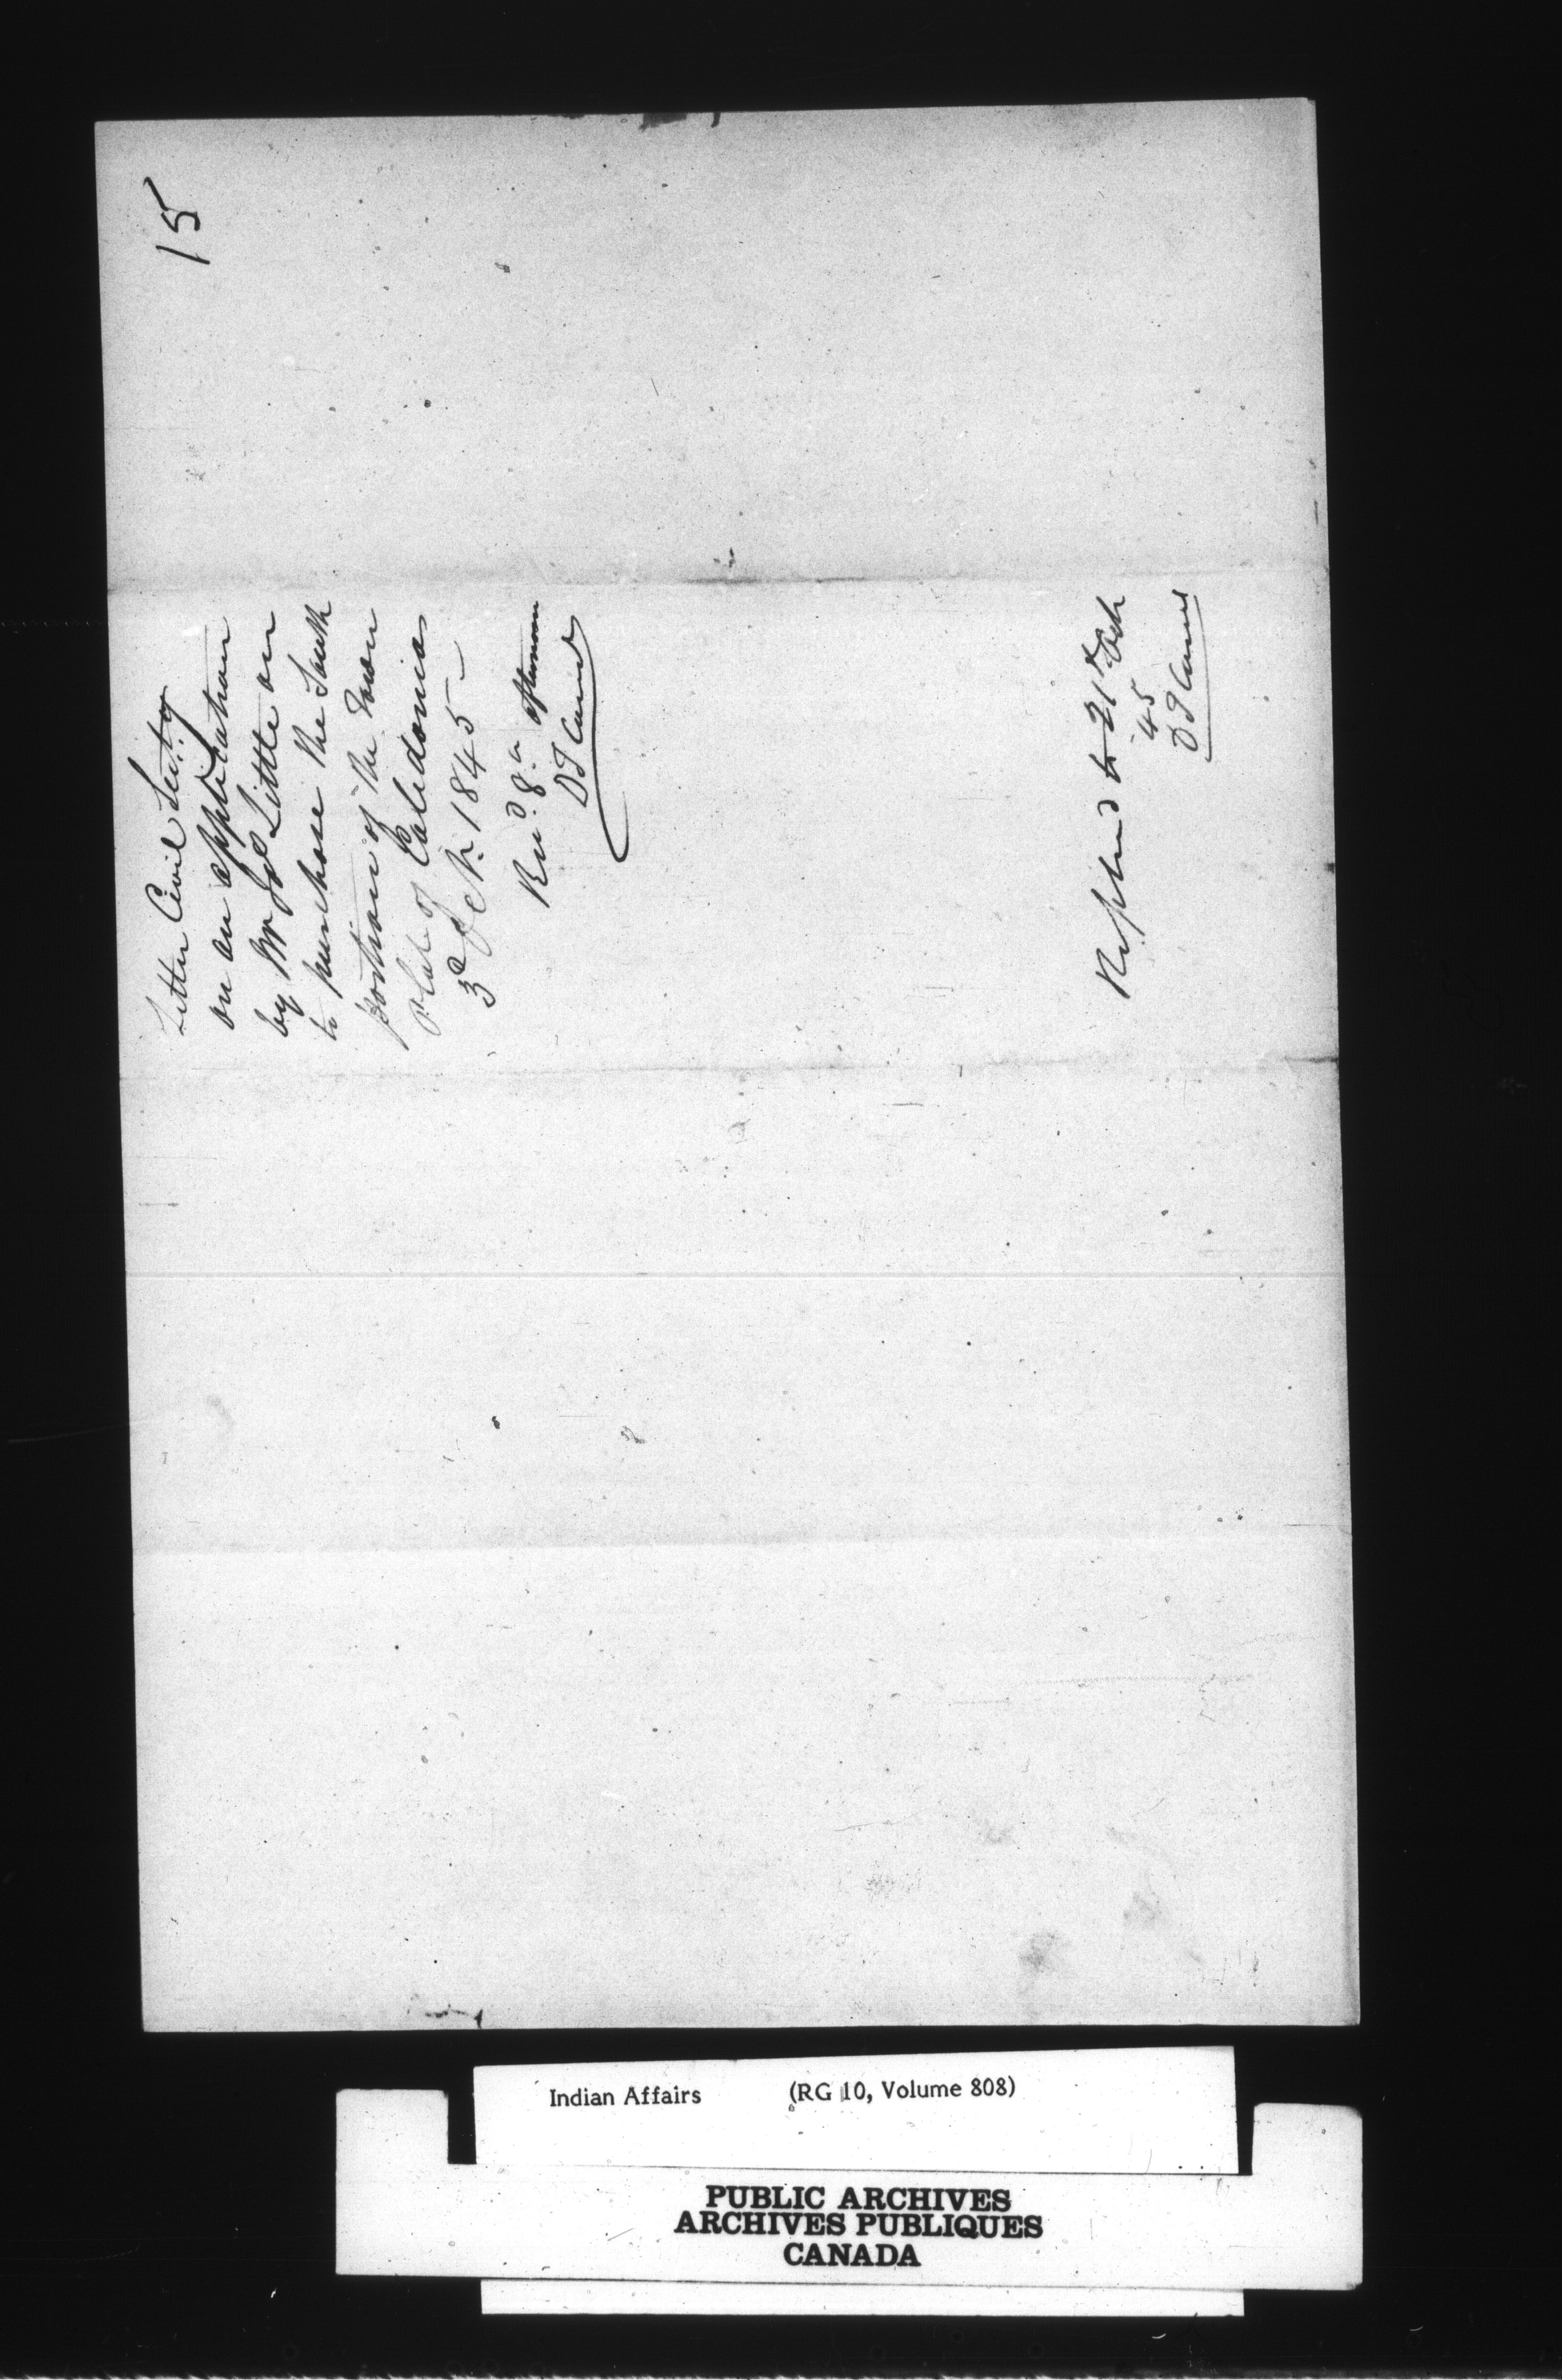 15
Letter Civil Sectry
on an application
by Mr Jas Little on
to purchase the South
portion of the Town
plot of Caledonia
3d Feb. 1845
Recd. 8th afternoon
Replied to 21st Feb
45
Indian Affairs (RG 10, Volume 808)
PUBLIC ARCHIVES
ARCHIVES PUBLIQUES
CANADA